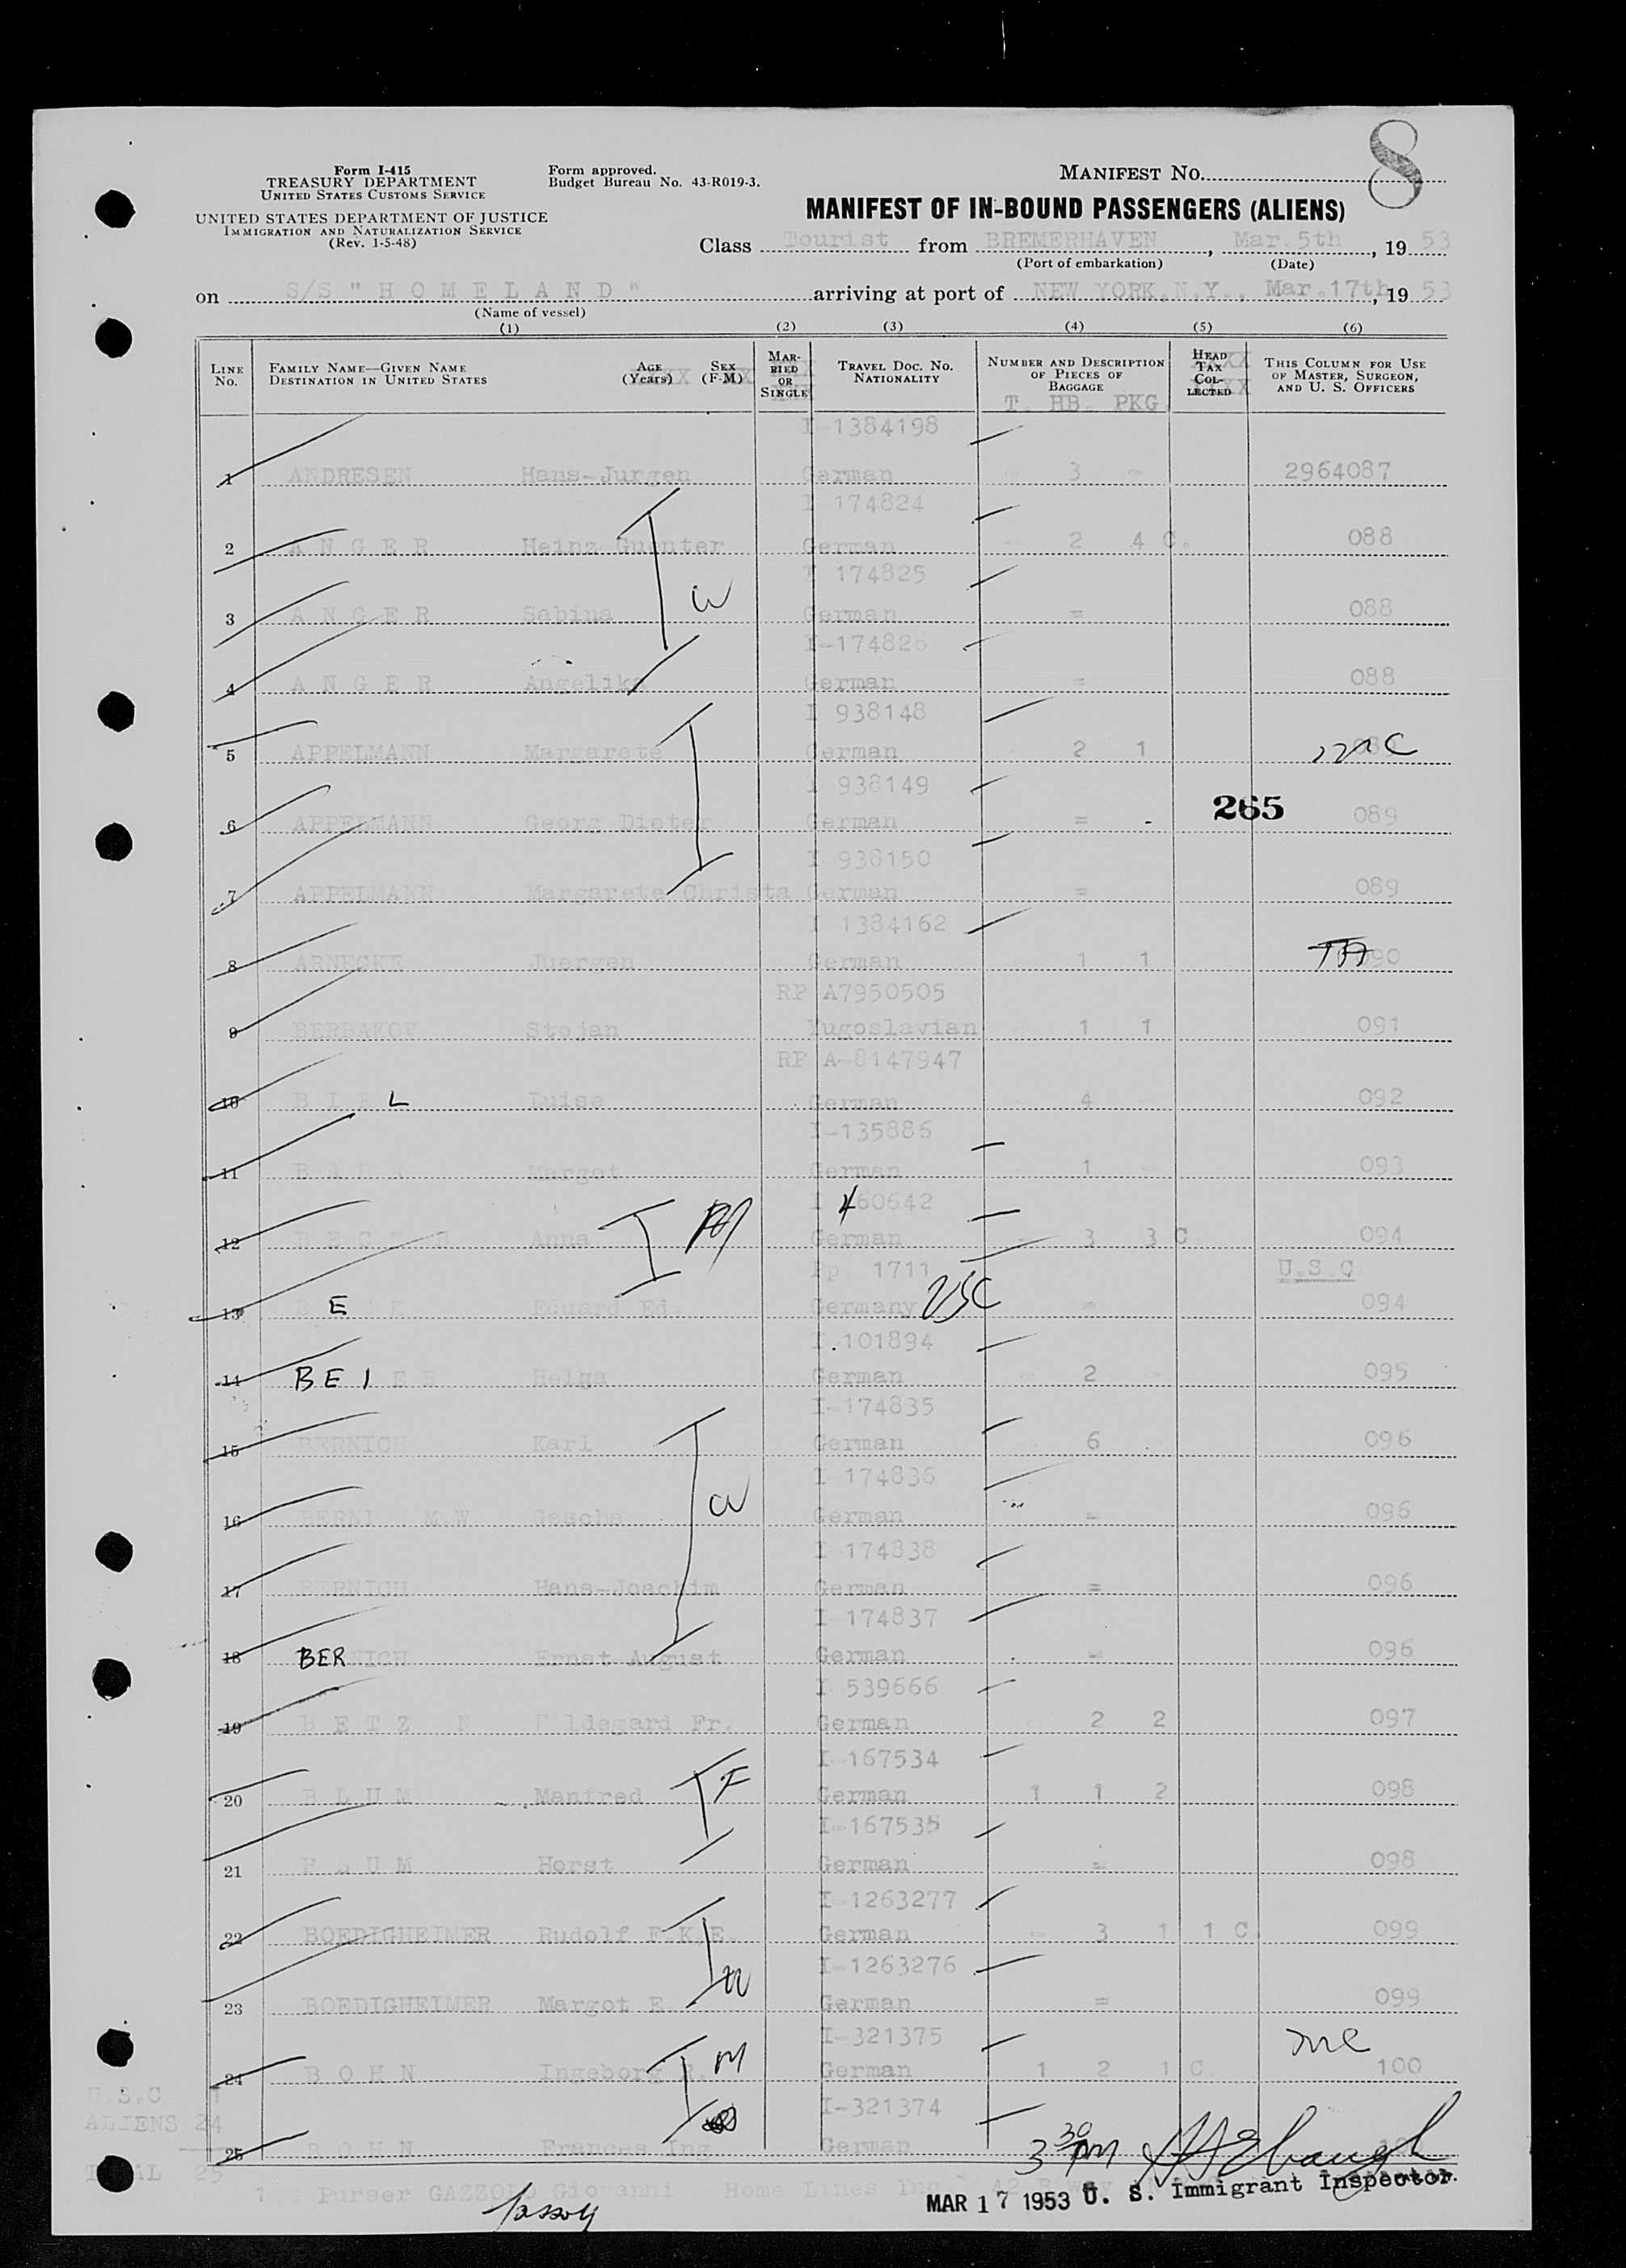 8
Form I-415
TREASURY DEPARTMENT
UNITED STATES CUSTOMS SERVICE
UNITED STATES DEPARTMENT OF JUSTICE
IMMIGRATION AND NATURALIZATION SERVICE
(Rev. 1-5-48)
Form approved.
Budget Bureau No. 43-R019-3.
MANIFEST NO.
MANIFEST OF IN-BOUND PASSENGERS (ALIENS)
Class Tourist from BREMERHAVEN, Mar.5th, 19 53
(Port of embarkation) (Date)
on S/S "H O M E L A N D" arriving at port of NEW YORK,N.Y., Mar.17th, 19 53
(Name of vessel)
(1) (2) (3) (4) (5) (6)
LINE No. FAMILY NAME—GIVEN NAME DESTINATION IN UNITED STATES AGE (Years) SEX (F-M) MARRIED OR SINGLE TRAVEL DOC. NO. NATIONALITY NUMBER AND DESCRIPTION OF PIECES OF BAGGAGE HEAD TAX COLLECTED THIS COLUMN FOR USE OF MASTER, SURGEON, AND U. S. OFFICERS
T. HB. PKG
I-1384198
1 ANDRESEN Hans-Jurgen German - 3 - 2964087
I 174824
2 A N G E R Heinz Guenter German - 2 4 C. 088
I 174825
3 A N G E R Sabina German = 088
I-174826
4 A N G E R Angelika German = 088
I 938148
5 APPELMANN Margarete German 2 1
I 938149
6 APPELMANN Georg Dieter German = - 265 089
I-938150
7 APPELMANN Margarete Christa German = 089
I 1384162
8 ARNECKE Juergen German 1 1 090
RP A7950505
9 BERBAKOV Stojan Yugoslavian 1 1 091
RP A-8147947
10 B I E L Luise German 4 092
I-135886
11 Margot German 1 093
I 460642
12 Anna German 3 3 C 094
Pp. 1711 U.S.C
13 E Eduard Ed. Germany USC = 094
I.101894
14 B E I E R Helga German 2 095
I-174835
15 BERNICH Karl German 6 096
I-174836
16 BERNI M.W. Gesche German = 096
I-174838
17 BERNICH Hans-Joachim German = 096
I-174837
18 BERNICH Ernst August German = 096
I 539666
19 B E T Z N ldegard Fr. German 2 2 097
I-167534
20 B L U M Manfred F German 1 1 2 098
I-167535
21 U M Horst German = 098
I-1263277
22 BOEDIGHEIMER Rudolf F.K.E. German - 3 1 1 C. 099
I-1263276
23 BOEDIGHEIMER Margot E. German = 099
I-321375
24 B O H N Ingeborg R. M German 1 2 1 C. 100
U.S.C 1
ALIENS 24
I-321374
25 B O H N Frances Ing German
TOTAL 25
3 30 PM
Purser GAZZOLO Giovanni Home Lines Inc
MAR 17 1953 U. S. Immigrant Inspector.